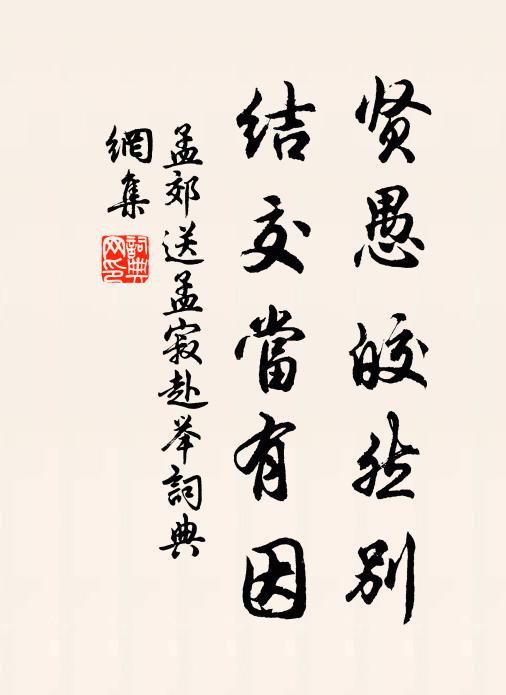 贤愚皎然别
结交當有因
孟郊送孟寂赴举詞典
網集
詞典
网印